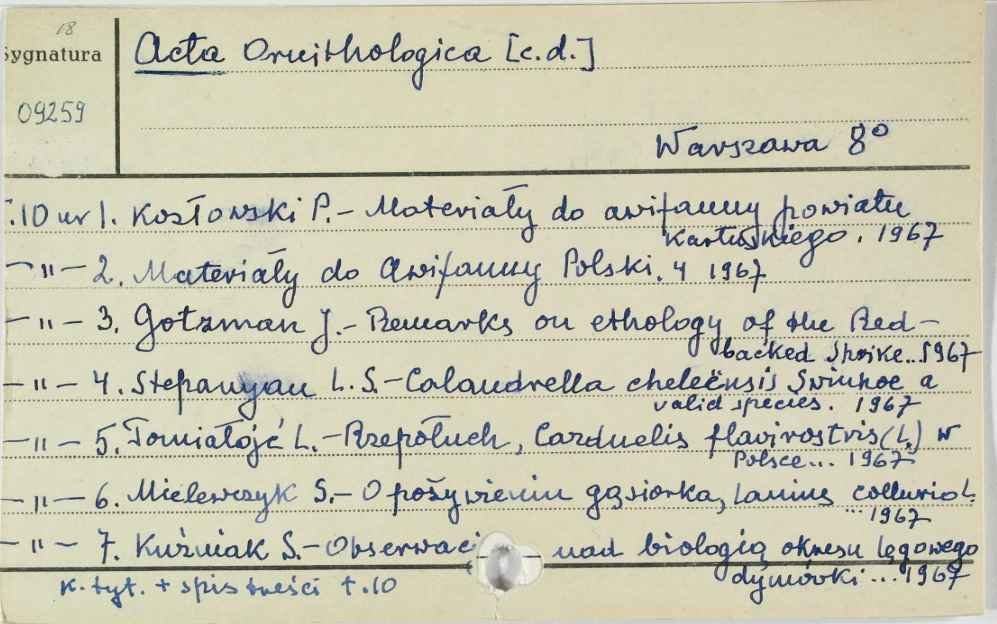 18
Sygnatura
09259
Acta Ornithologica [c.d.]
Warszawa 8°
T.10 nr 1. Kozłowski P. - Materiały do awifauny powiatu
Kartuskiego. 1967
- " - 2. Materiały do Awifauny Polski. 4 1967
- " - 3. Gotzman J. - Remarks on ethology of the Red-
backed Shrike... 1967
- " - 4. Stepanyan L. S. - Calandrella cheleënsis Swinhoe a
valid species. 1967
- " - 5. Tomiałojć L. - Rzepołuch, Carduelis flavirostris (L.) w
Polsce... 1967
- " - 6. Mielewczyk S. - O pożywieniu gąsiorka, Lanius collurio L.
... 1967
- " - 7. Kuźniak S. - Obserwac nad biologią okresu lęgowego
dymówki ... 1967
K. tyt. + spis treści t. 10